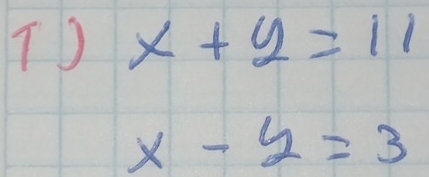 1) x + y = 11
x - y = 3